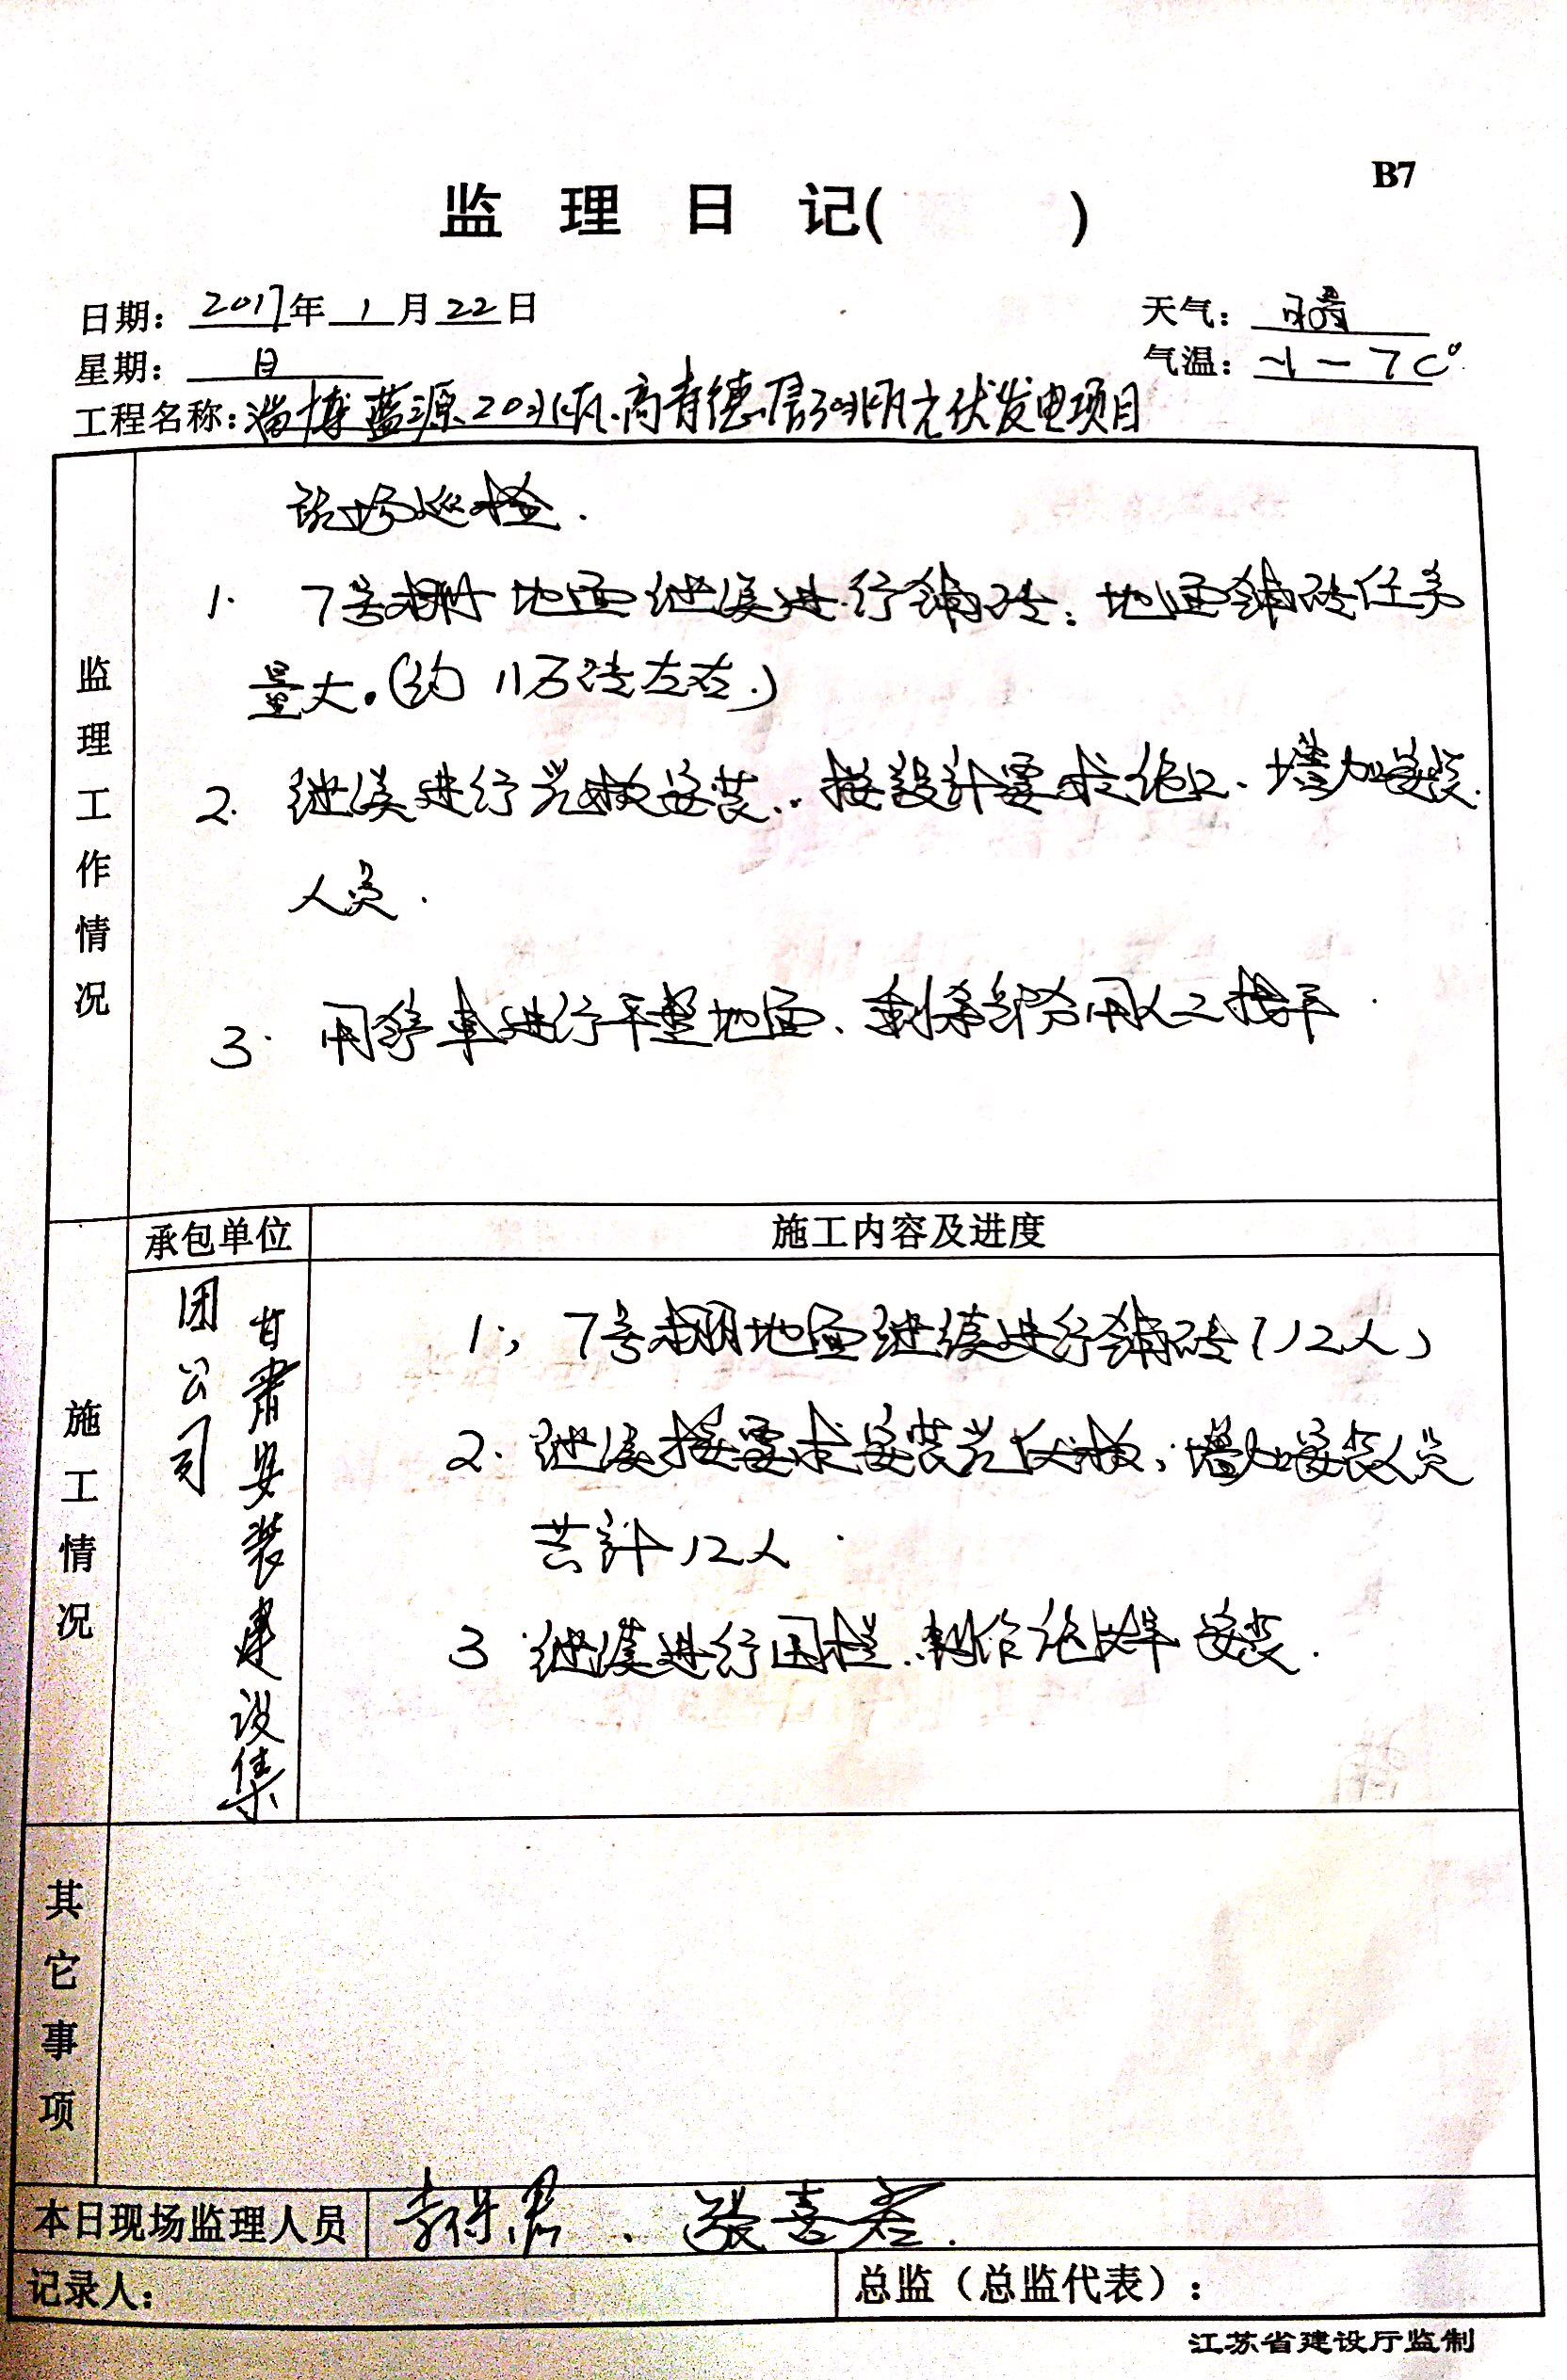 B7
监 理 日 记( )
日期: 2017年 1 月 22 日
天气: 晴
星期: 日
气温: -1-7C°
工程名称: 淄博蓝源20兆瓦、高青德信30兆瓦光伏发电项目
监理工作情况
现场巡检.
1. 7号棚地面继续进行铺砖;地面铺砖任务
量大。(约11万砖左右.)
2. 继续进行光板安装..按設计要求施工、增加安装
人员.
3. 用铲車进行平整地面、剩余部分用人工找平.
施工情况
承包单位
施工内容及进度
甘肃安装建设集
团公司
1, 7号棚地面继续进行铺砖(12人)
2. 继续按要求安装光伏板,增加安装人员
共計12人.
3 继续进行围栏.制作 安装.
其它事项
本日现场监理人员
记录人:
总监(总监代表):
江苏省建设厅监制